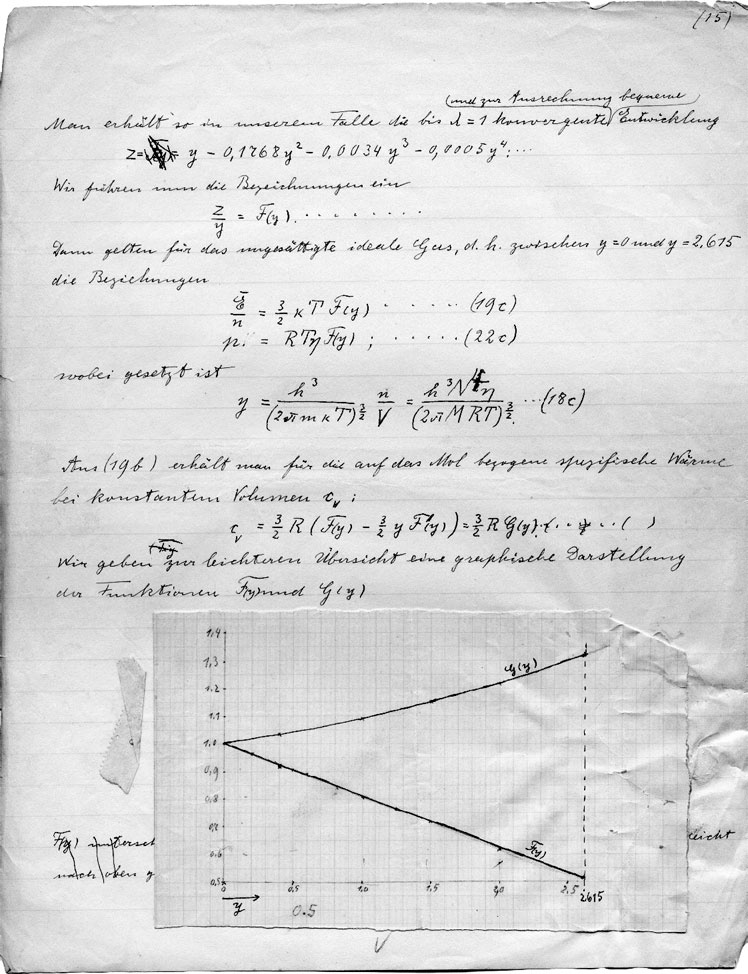 (15)
(und zur Ausrechnung bequeme)
Man erhält so in unserem Falle die bis λ = 1 konvergente Entwicklung
z = y - 0,1768 y² - 0,0034 y³ - 0,0005 y⁴ ; ...
Wir führen nun die Bezeichnungen ein
z/y = F(y) . . . . . . . .
Dann gelten für das ungesättigte ideale Gas, d. h. zwischen y = 0 und y = 2,615
die Beziehungen
Ē/n = 3/2 κ T F(y) . . . . . (19c)
p = R T η F(y) ; . . . . . (22c)
wobei gesetzt ist
y = h³/(2π m κ T)^3/2 n/V = h³ N⁴ η/(2π M R T)^3/2 ... (18c)
Aus (19b) erhält man für die auf das Mol bezogene spezifische Wärme
bei konstantem Volumen c_v :
c_v = 3/2 R (F(y) - 3/2 y F'(y)) = 3/2 R G(y) . . . . . ( )
Wir geben zur leichteren Übersicht eine graphische Darstellung
der Funktionen F(y) und G(y)
1,4
1,3
1.2
1.1
1.0
0,9
0,8
0,7
0.6
0,5
G(y)
F(y)
0 0,5 1.0 1,5 2,0 2,5 2.615
y
0.5
F(y) untersch
leicht
nach oben g